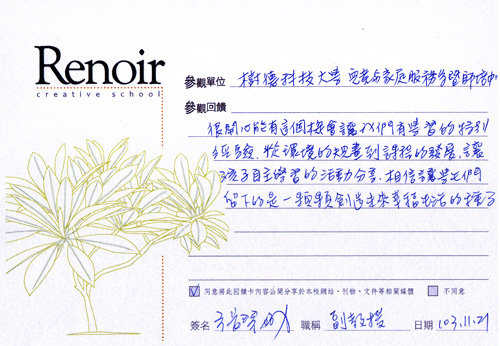 Renoir
creative school
參觀單位 樹德科技大學 兒童與家庭服務系
參觀回饋
很開心能有這個機會讓我們有學習的特別
經驗，從環境的規畫到課程的發展，讓
孩子自主學習的活動分享，相信
留下的是一顆顆創造未來幸福生活的種子
同意將此回饋卡內容公開分享於本校網站、刊物、文件等相關媒體 不同意
簽名 職稱 副教授 日期 103.11.21